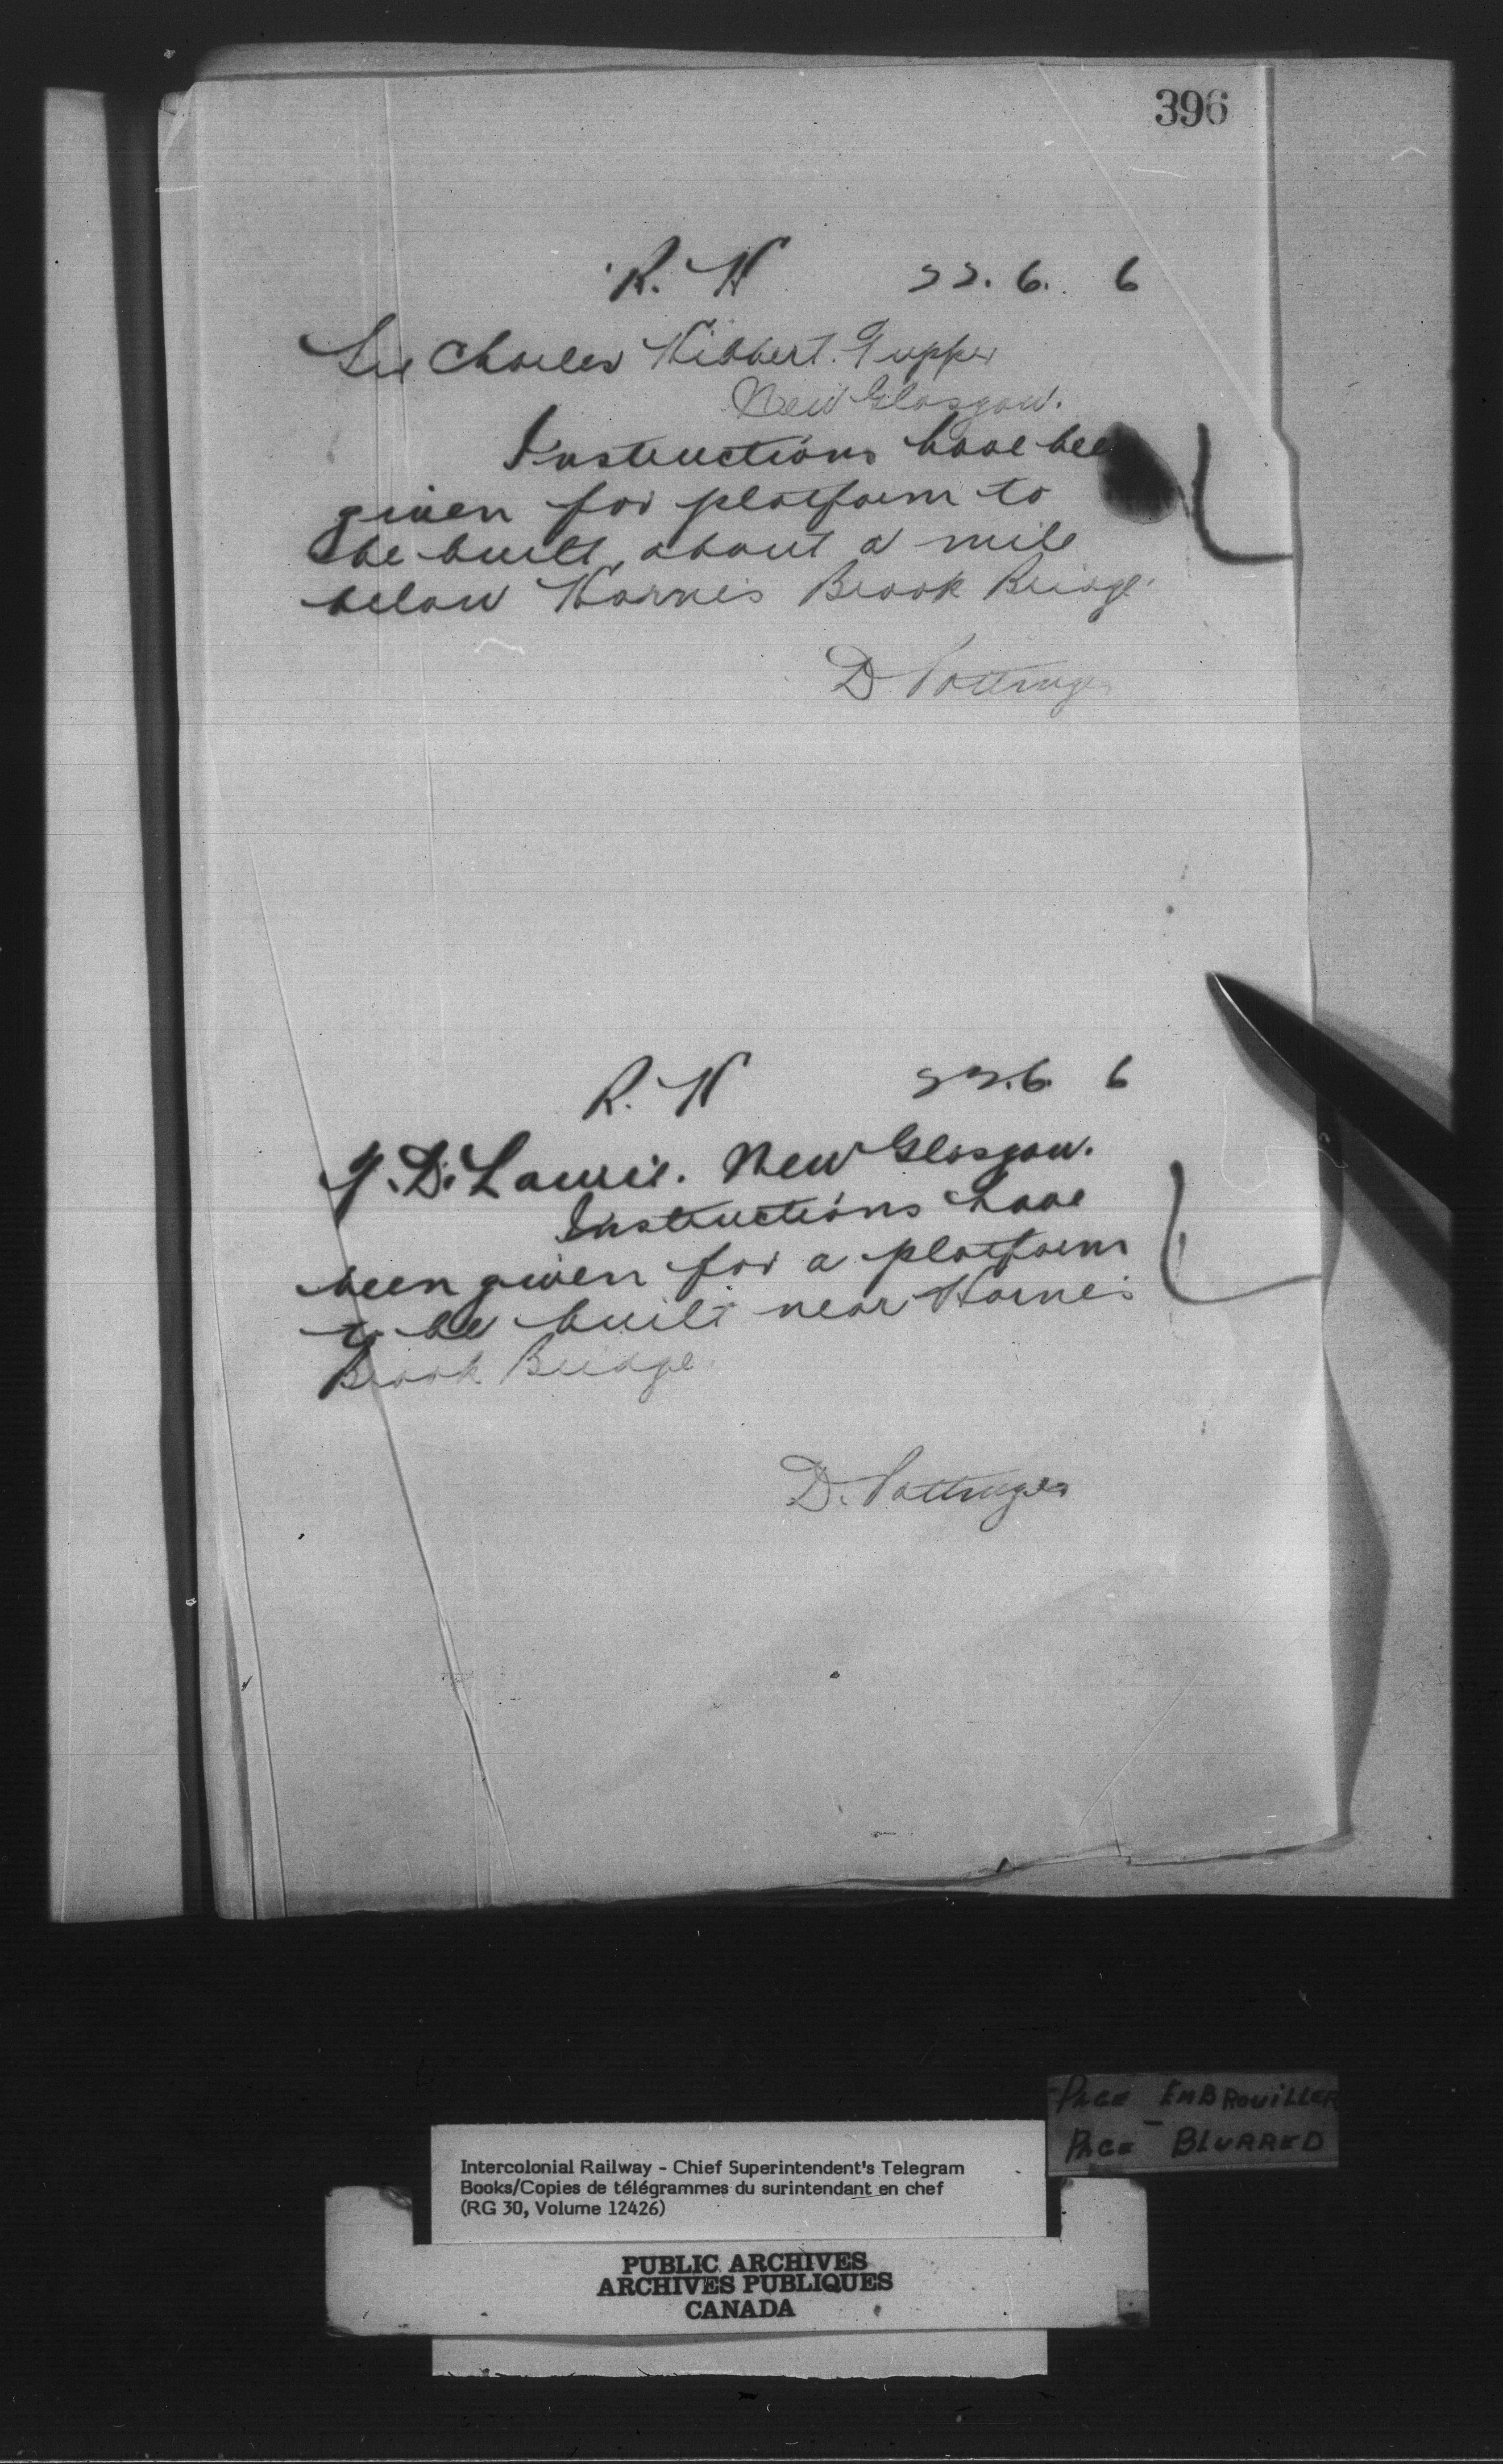 396
R. H 22. 6. 6
Sir Charles Hibbert Tupper
New Glasgow.
Instructions have bee
given for platform to
be built about a mile
below Horne's Brook Bridge.
D Pottinger
R. H 22.6. 6
J. D. Lawrie. New Glasgow.
Instructions have
been given for a platform
to be built near Horne's
Brook Bridge
D. Pottinger
PAGE EMBROUILLER
PAGE BLURRED
Intercolonial Railway - Chief Superintendent's Telegram
Books/Copies de télégrammes du surintendant en chef
(RG 30, Volume 12426)
PUBLIC ARCHIVES
ARCHIVES PUBLIQUES
CANADA